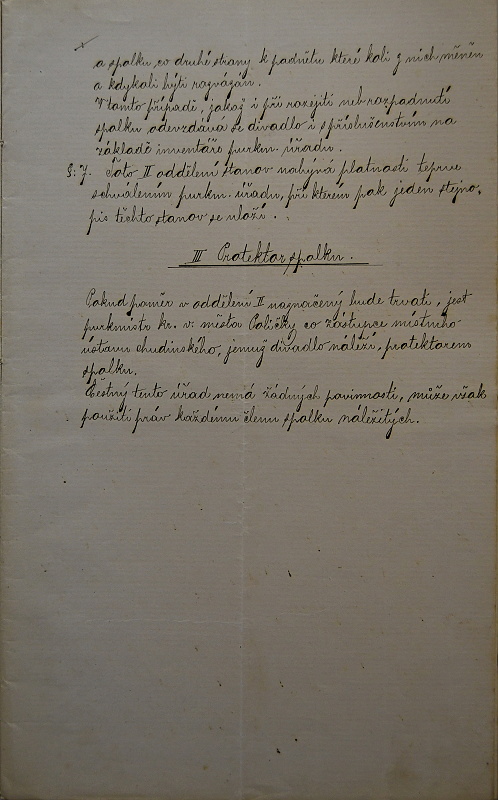 a spolku, co druhé strany k podnětu které koli z nich, měněn
a kdykoli býti rozvázán.
V tomto případě, jakož i při rozejití neb rozpadnutí
spolku, odevzdává se divadlo i s příslušenstvím na
základě inventáře purkm. úřadu.
§. 7. Toto II oddělení stanov nabývá platnosti teprve
schválením purkm. úřadu, při kterém pak jeden stejno-
pis těchto stanov se uloží.
III Protektor spolku.
Pokud poměr v oddělení II naznačený bude trvati, jest
purkmistr kr. v. města Poličky co zástupce místního
ústavu chudinského, jemuž divadlo náleží, protektorem
spolku.
Čestný tento úřad nemá žádných povinností, může však
použíti práv každému členu spolku náležitých.